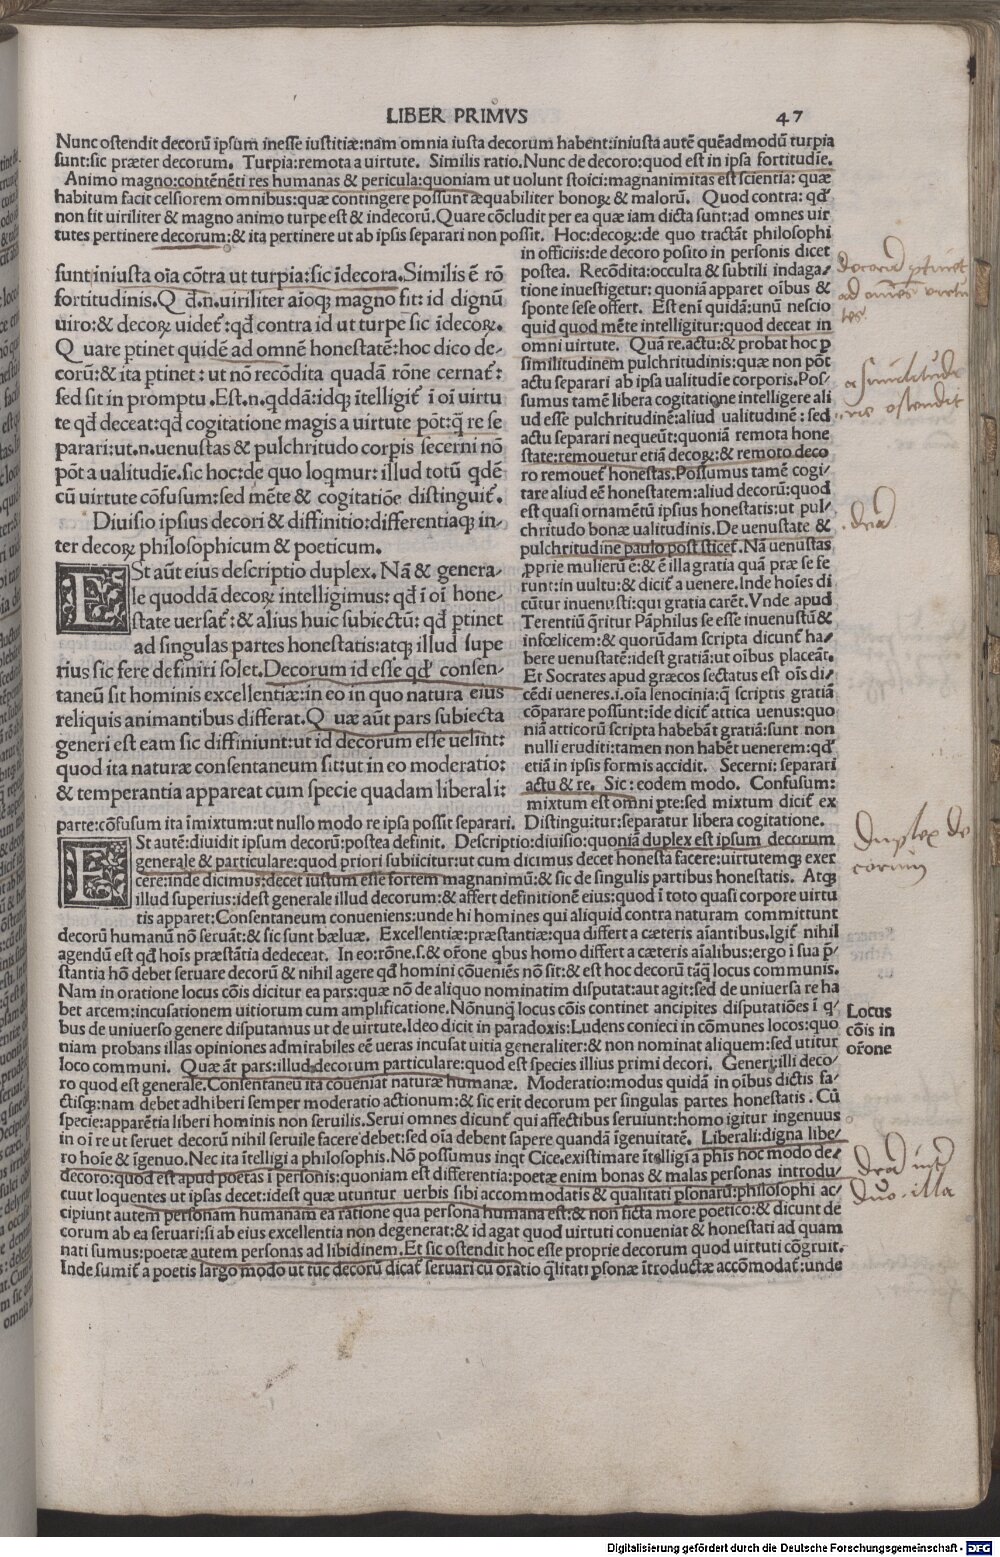 LIBER PRIMVS 47
Nunc ostendit decorū ipsum inesse iustitiæ:nam omnia iusta decorum habent:iniusta autē quēadmodū turpia
sunt:sic præter decorum. Turpia:remota a uirtute. Similis ratio.Nunc de decoro:quod est in ipsa fortitudie.
Animo magno:contēnēti res humanas & pericula:quoniam ut uolunt stoici:magnanimitas est scientia: quæ
habitum facit celsiorem omnibus:quæ contingere possunt æquabiliter bonoꝝ & malorū. Quod contra: qđ
non fit uiriliter & magno animo turpe est & indecorū.Quare cōcludit per ea quæ iam dicta sunt:ad omnes uir
tutes pertinere decorum:& ita pertinere ut ab ipsis separari non possit. Hoc:decoꝝ:de quo tractāt philosophi
sunt iniusta oīa cōtra ut turpia:sic īdecora.Similis ē rō
fortitudinis.Q đ.n.uiriliter aīoqꝫ magno fit: id dignū
uiro:& decoꝝ uidet᷑:qđ contra id ut turpe sic īdecoꝝ.
Q uare ꝑtinet quidē ad omnē honestatē:hoc dico de-
corū:& ita ꝑtinet: ut nō recōdita quadā rōne cernat᷑:
sed sit in promptu.Est.n.qddā:idqꝫ ītelligit᷑ ī oī uirtu
te qđ deceat:qđ cogitatione magis a uirtute pōt:q̄ re se
parari:ut.n.uenustas & pulchritudo corꝑis secerni nō
pōt a ualitudīe.sic hoc:de quo loqmur: illud totū qdē
cū uirtute cōfusum:sed mēte & cogitatiōe distinguit᷑.
Diuisio ipsius decori & diffinitio:differentiaqꝫ in-
ter decoꝝ philosophicum & poeticum.
ESt aūt eius descriptio duplex. Nā & genera-
le quoddā decoꝝ intelligimus: qđ ī oī hone-
state uersat᷑: & alius huic subiectū: qđ ꝑtinet
ad singulas partes honestatis:atqꝫ illud supe
rius sic fere definiri solet.Decorum id esse qđ consen-
taneū sit hominis excellentiæ:in eo in quo natura eius
reliquis animantibus differat.Q uæ aūt pars subiecta
generi est eam sic diffiniunt:ut id decorum esse uelint:
quod ita naturæ consentaneum sit:ut in eo moderatio:
& temperantia appareat cum specie quadam liberali:
in officiis:de decoro posito in personis dicet
postea. Recōdita:occulta & subtili indaga-
tione inuestigetur: quoniā apparet oībus &
sponte sese offert. Est enī quidā:unū nescio
quid quod mēte intelligitur:quod deceat in
omni uirtute. Quā re.actu:& probat hoc ꝑ
similitudinem pulchritudinis:quæ non pōt
actu separari ab ipsa ualitudīe corporis.Pos-
sumus tamē libera cogitatione intelligere ali
ud esse pulchritudinē:aliud ualitudinē : sed
actu separari nequeūt:quoniā remota hone
state:remouetur etiā decoꝝ:& remoto deco
ro remouet᷑ honestas.Possumus tamē cogi-
tare aliud eē honestatem:aliud decorū:quod
est quasi ornamētū ipsius honestatis:ut pul-
chritudo bonæ ualitudinis.De uenustate &
pulchritudine paulo post sticet᷑.Nā uenustas
ꝓprie mulierū ē:& ē illa gratia quā præ se fe
runt:in uultu:& dicit᷑ a uenere.Inde hoīes di
cūtur inuenusti:qui gratia carēt.Vnde apud
Terentiū q̄ritur Pāphilus se esse inuenustū&
infœlicem:& quorūdam scripta dicunt᷑ ha-
bere uenustatē:idest gratiā:ut oībus placeāt.
Et Socrates apud græcos sectatus est oīs di-
cēdi ueneres.i.oīa lenocinia:q̄ scriptis gratiā
cōparare possunt:īde dicit᷑ attica uenus:quo
niā atticorū scripta habebāt gratiā:sunt non
nulli eruditi:tamen non habēt uenerem:qđ
etiā in ipsis formis accidit. Secerni: separari
actu & re. Sic: eodem modo. Confusum:
mixtum est omni ꝑte:sed mixtum dicit᷑ ex
parte:cōfusum ita īmixtum:ut nullo modo re ipsa possit separari. Distinguitur:separatur libera cogitatione.
ESt autē:diuidit ipsum decorū:postea definit. Descriptio:diuisio:quoniā duplex est ipsum decorum
generale & particulare:quod priori subiicitur:ut cum dicimus decet honesta facere:uirtutemqꝫ exer
cere:inde dicimus:decet iustum esse fortem magnanimū:& sic de singulis partibus honestatis. Atqꝫ
illud superius:idest generale illud decorum:& affert definitionē eius:quod ī toto quasi corpore uirtu
tis apparet:Consentaneum conueniens:unde hi homines qui aliquid contra naturam committunt
decorū humanū nō seruāt:& sic sunt bæluæ. Excellentiæ:præstantiæ:qua differt a cæteris aīantibus.Igit᷑ nihil
agendū est qđ hoīs præstātia dedeceat. In eo:rōne.s.& orōne qbus homo differt a cæteris aīalibus:ergo ī sua p̄-
stantia hō debet seruare decorū & nihil agere qđ homini cōueniēs nō sit:& est hoc decorū tāq̄ locus communis.
Nam in oratione locus cōis dicitur ea pars:quæ nō de aliquo nominatim disputat:aut agit:sed de uniuersa re ha
bet arcem:incusationem uitiorum cum amplificatione.Nōnunq̄ locus cōis continet ancipites disputatiōes ī q-
bus de uniuerso genere disputamus ut de uirtute.Ideo dicit in paradoxis:Ludens conieci in cōmunes locos:quo
niam probans illas opiniones admirabiles eē ueras incusat uitia generaliter:& non nominat aliquem:sed utitur
loco communi. Quæ āt pars:illud decorum particulare:quod est species illius primi decori. Generi:illi deco-
ro quod est generale.Consentaneū ita cōueniat naturæ humanæ. Moderatio:modus quidā in oībus dictis fa-
ctisqꝫ:nam debet adhiberi semper moderatio actionum:& sic erit decorum per singulas partes honestatis. Cū
specie:apparētia liberi hominis non seruilis.Serui omnes dicunt᷑ qui affectibus seruiunt:homo igitur ingenuus
in oī re ut seruet decorū nihil seruile facere debet:sed oīa debent sapere quandā īgenuitatē. Liberali:digna libe-
ro hoīe & īgenuo.Nec ita ītelligi a philosophis.Nō possumus inqt Cice.existimare ītelligi a phis hoc modo de-
decoro:quod est apud poetas ī personis:quoniam est differentia:poetæ enim bonas & malas personas introdu-
cuut loquentes ut ipsas decet:idest quæ utuntur uerbis sibi accommodatis & qualitati ꝑsonarū:philosophi ac-
cipiunt autem personam humanam ea ratione qua persona humana est:& non ficta more poetico:& dicunt de
corum ab ea seruari:si ab eius excellentia non degenerat:& id agat quod uirtuti conueniat & honestati ad quam
nati sumus:poetæ autem personas ad libidinem.Et sic ostendit hoc esse proprie decorum quod uirtuti cōgruit.
Inde sumit᷑ a poetis largo modo ut tūc decorū dicat᷑ seruari cū oratio q̄litati ꝑsonæ ītroductæ accōmodat᷑:unde
Locus
cōis in
orōne
decorū ptinet
ad omēs virtu
tes
a similitudi
ne ostendit
Duplex de
corum
Digitalisierung gefördert durch die Deutsche Forschungsgemeinschaft - DFG